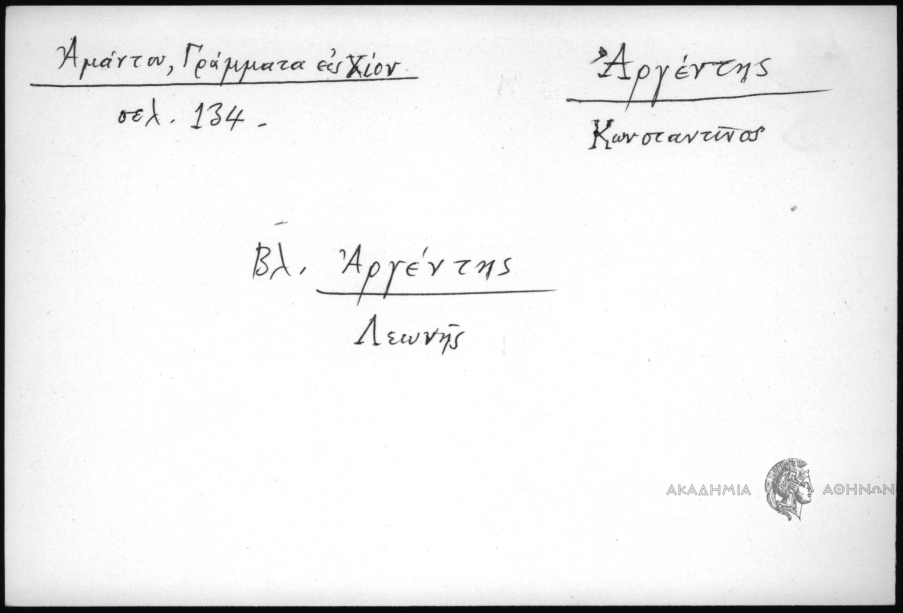 Ἀμάντου, Γράμματα εἰς Χίον
σελ. 134.
Ἀργέντης
Κωνσταντῖνος
Βλ. Ἀργέντης
Λεωνῆς
ΑΚΑΔΗΜΙΑ ΑΘΗΝΩΝ